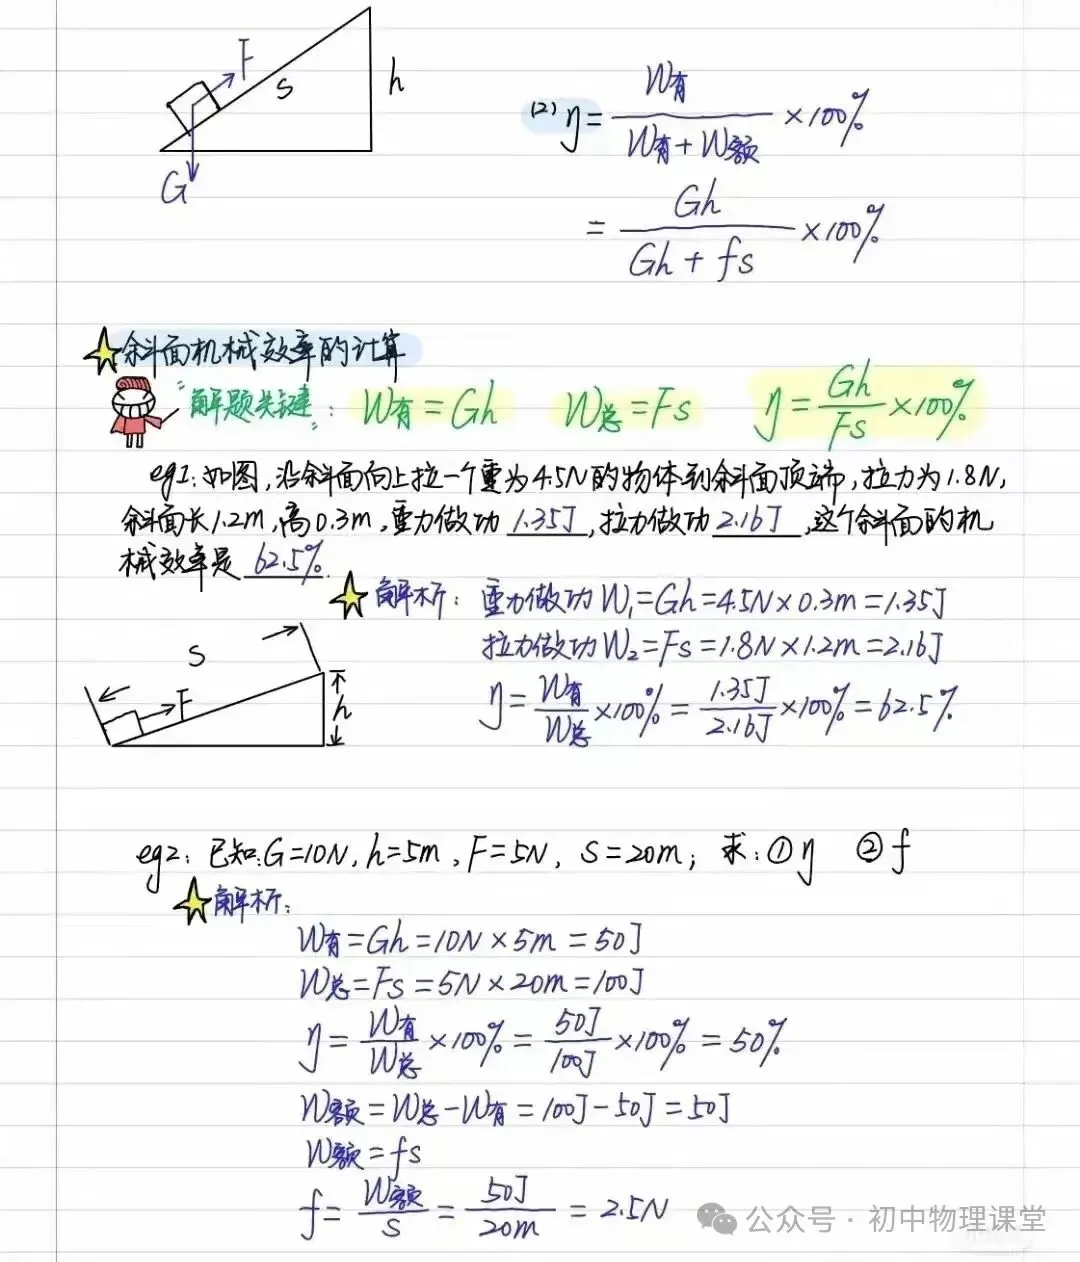 F
S
h
G
(2) η = W有 / (W有 + W额) × 100%
= Gh / (Gh + fs) × 100%
斜面机械效率的计算
"解题关键": W有 = Gh W总 = Fs η = Gh / Fs × 100%
eg1: 如图, 沿斜面向上拉一个重为4.5N的物体到斜面顶端, 拉力为1.8N,
斜面长1.2m, 高0.3m, 重力做功 1.35J, 拉力做功 2.16J, 这个斜面的机
械效率是 62.5%.
解析: 重力做功 W₁=Gh=4.5N×0.3m=1.35J
拉力做功 W₂=Fs=1.8N×1.2m=2.16J
η = W有 / W总 ×100% = 1.35J / 2.16J ×100% = 62.5%
S
F
h
eg2: 已知: G=10N, h=5m, F=5N, S=20m; 求: ① η ② f
解析:
W有=Gh=10N×5m=50J
W总=Fs=5N×20m=100J
η = W有 / W总 ×100% = 50J / 100J ×100% = 50%
W额=W总-W有=100J-50J=50J
W额=fs
f = W额 / S = 50J / 20m = 2.5N
公众号·初中物理课堂